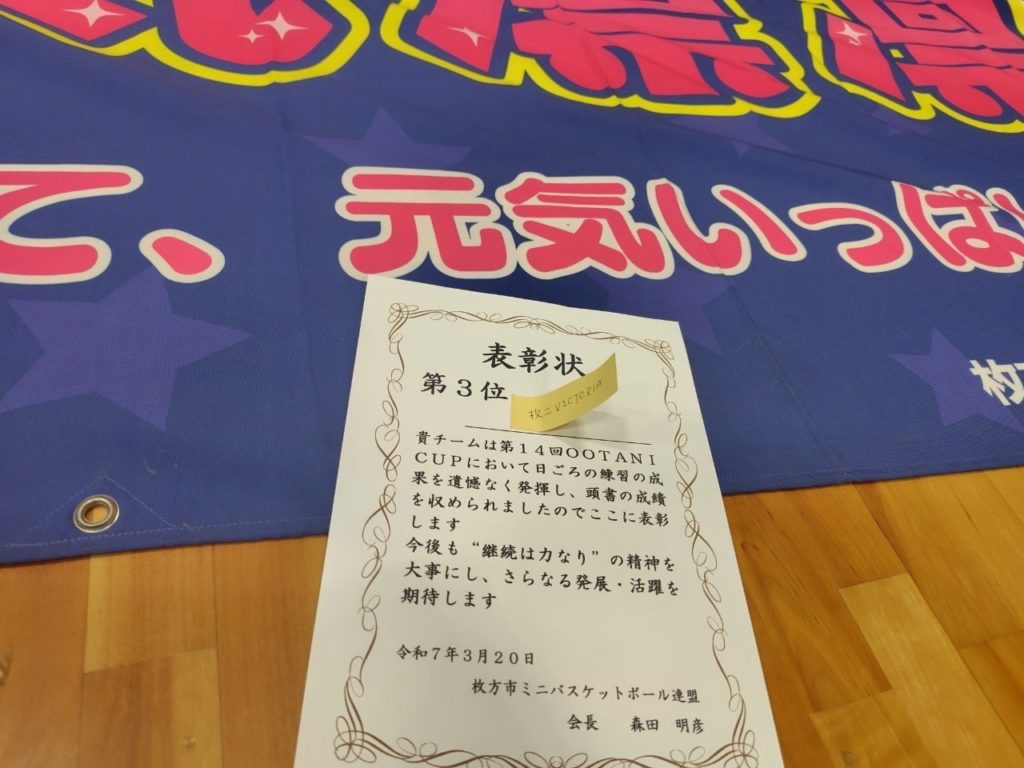 凛凛
て、元気いっぱ
枚
表彰状
第３位
枚二VICTORIA
貴チームは第１４回ＯＯＴＡＮＩ
ＣＵＰにおいて日ごろの練習の成
果を遺憾なく発揮し、頭書の成績
を収められましたのでここに表彰
します
今後も“継続は力なり”の精神を
大事にし、さらなる発展・活躍を
期待します
令和７年３月２０日
枚方市ミニバスケットボール連盟
会長　森田　明彦